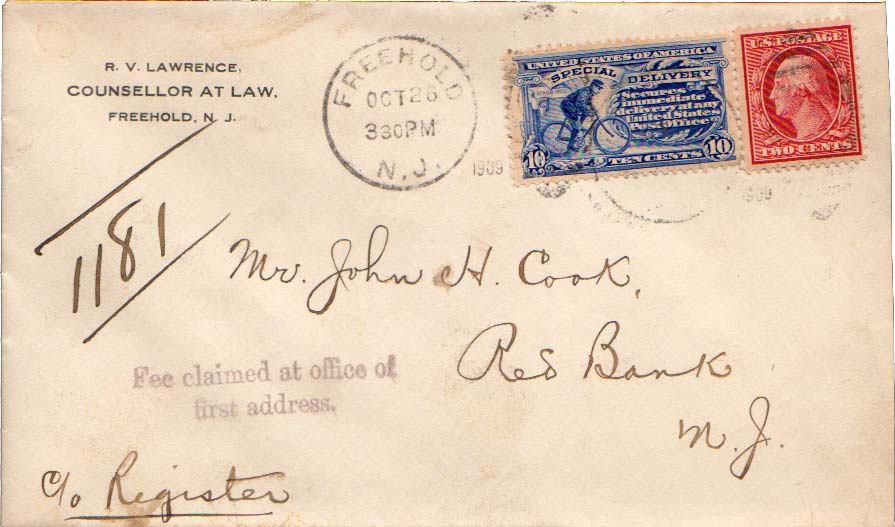 R. V. LAWRENCE,
COUNSELLOR AT LAW,
FREEHOLD, N. J.
FREEHOLD
OCT 26
330PM
N.J.
1909
UNITED STATES OF AMERICA
SPECIAL DELIVERY
Secures
immediate
delivery at any
United States
Post Office
10 TEN CENTS 10
U.S. POSTAGE
TWO CENTS
1909
1181
Mr. John H. Cook,
Red Bank
N. J.
Fee claimed at office of
first address.
c/o Register